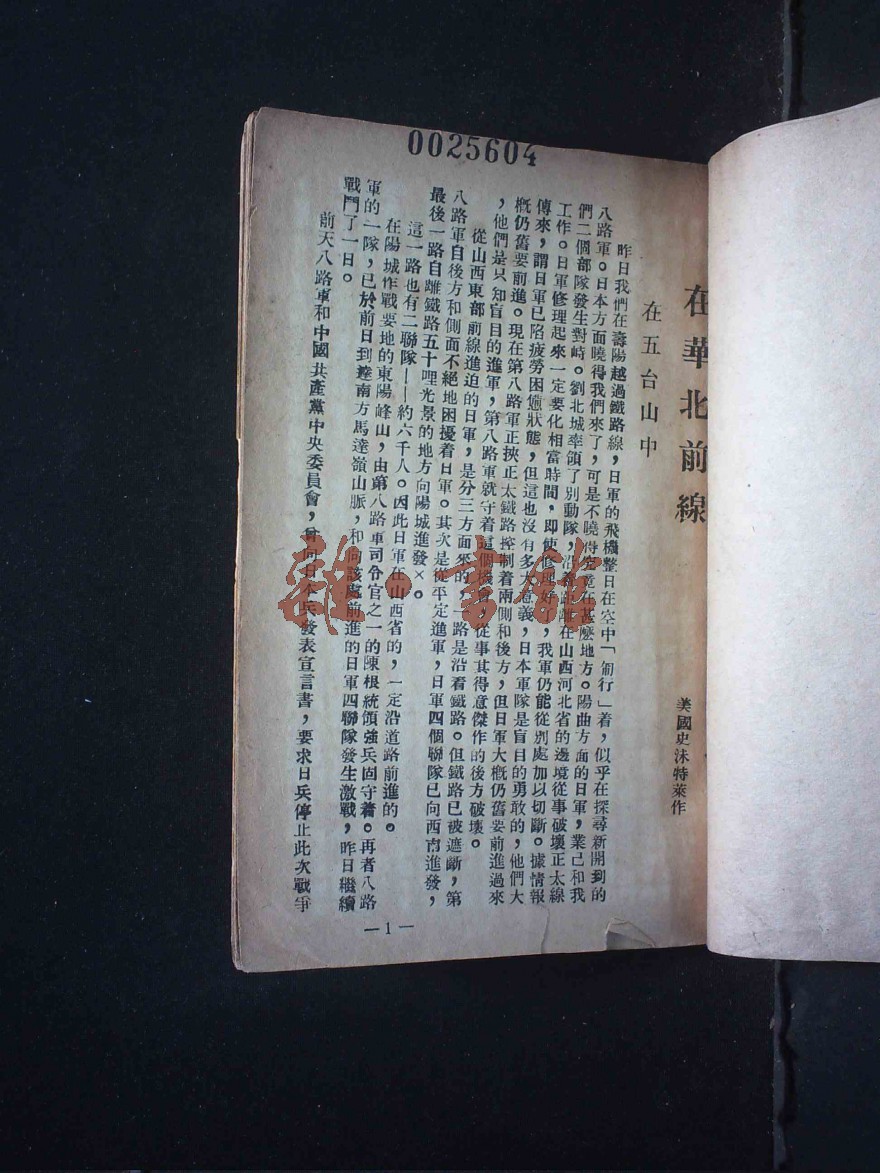 0025604
在華北前線
美國史沫特萊作
在五台山中
昨日我們在壽陽越過鐵路線，日軍的飛機整日在空中「匍行」着，似乎在探尋新開到的
八路軍。日本方面曉得我們來了，可是不曉得究竟在甚麼地方。陽曲方面的日軍，業已和我
們二個部隊發生對峙。劉北城率領了別動隊，沿鐵路在山西河北省的邊境從事破壞正太線
工作。日軍修理起來一定要化相當時間，即使修理好，我軍仍能從別處加以切斷。據情報
傳來，謂日軍已陷疲勞困憊狀態，但這也沒有多大意義，日本軍隊是盲目的勇敢的，他們大
概仍舊要前進。現在第八路軍正挾正太鐵路控制着兩側和後方，但日軍大概仍舊要前進過來
，他們是只知盲目的進軍，第八路軍就守着這個機會，從事其得意傑作的後方破壞。
從山西東部前線進迫的日軍，是分三方面來的，一路是沿着鐵路。但鐵路已被遮斷，第
八路軍自後方和側面不絕地困擾着日軍。其次是從平定進軍，日軍四個聯隊已向西南進發，
最後一路自離鐵路五十哩光景的地方向陽城進發×。
這一路也有二聯隊——約六千人。因此日軍在山西省的，一定沿道路前進的。
在陽城作戰要地的東陽峰山，由第八路軍司令官之一的陳根統領強兵固守着。再者八路
軍的一隊，已於前日到達南方馬達嶺山脈，和向該處前進的日軍四聯隊發生激戰，昨日繼續
戰鬥了一日。
前天八路軍和中國共產黨中央委員會，曾向日本兵發表宣言書，要求日兵停止此次戰爭
—1—
雜·書館